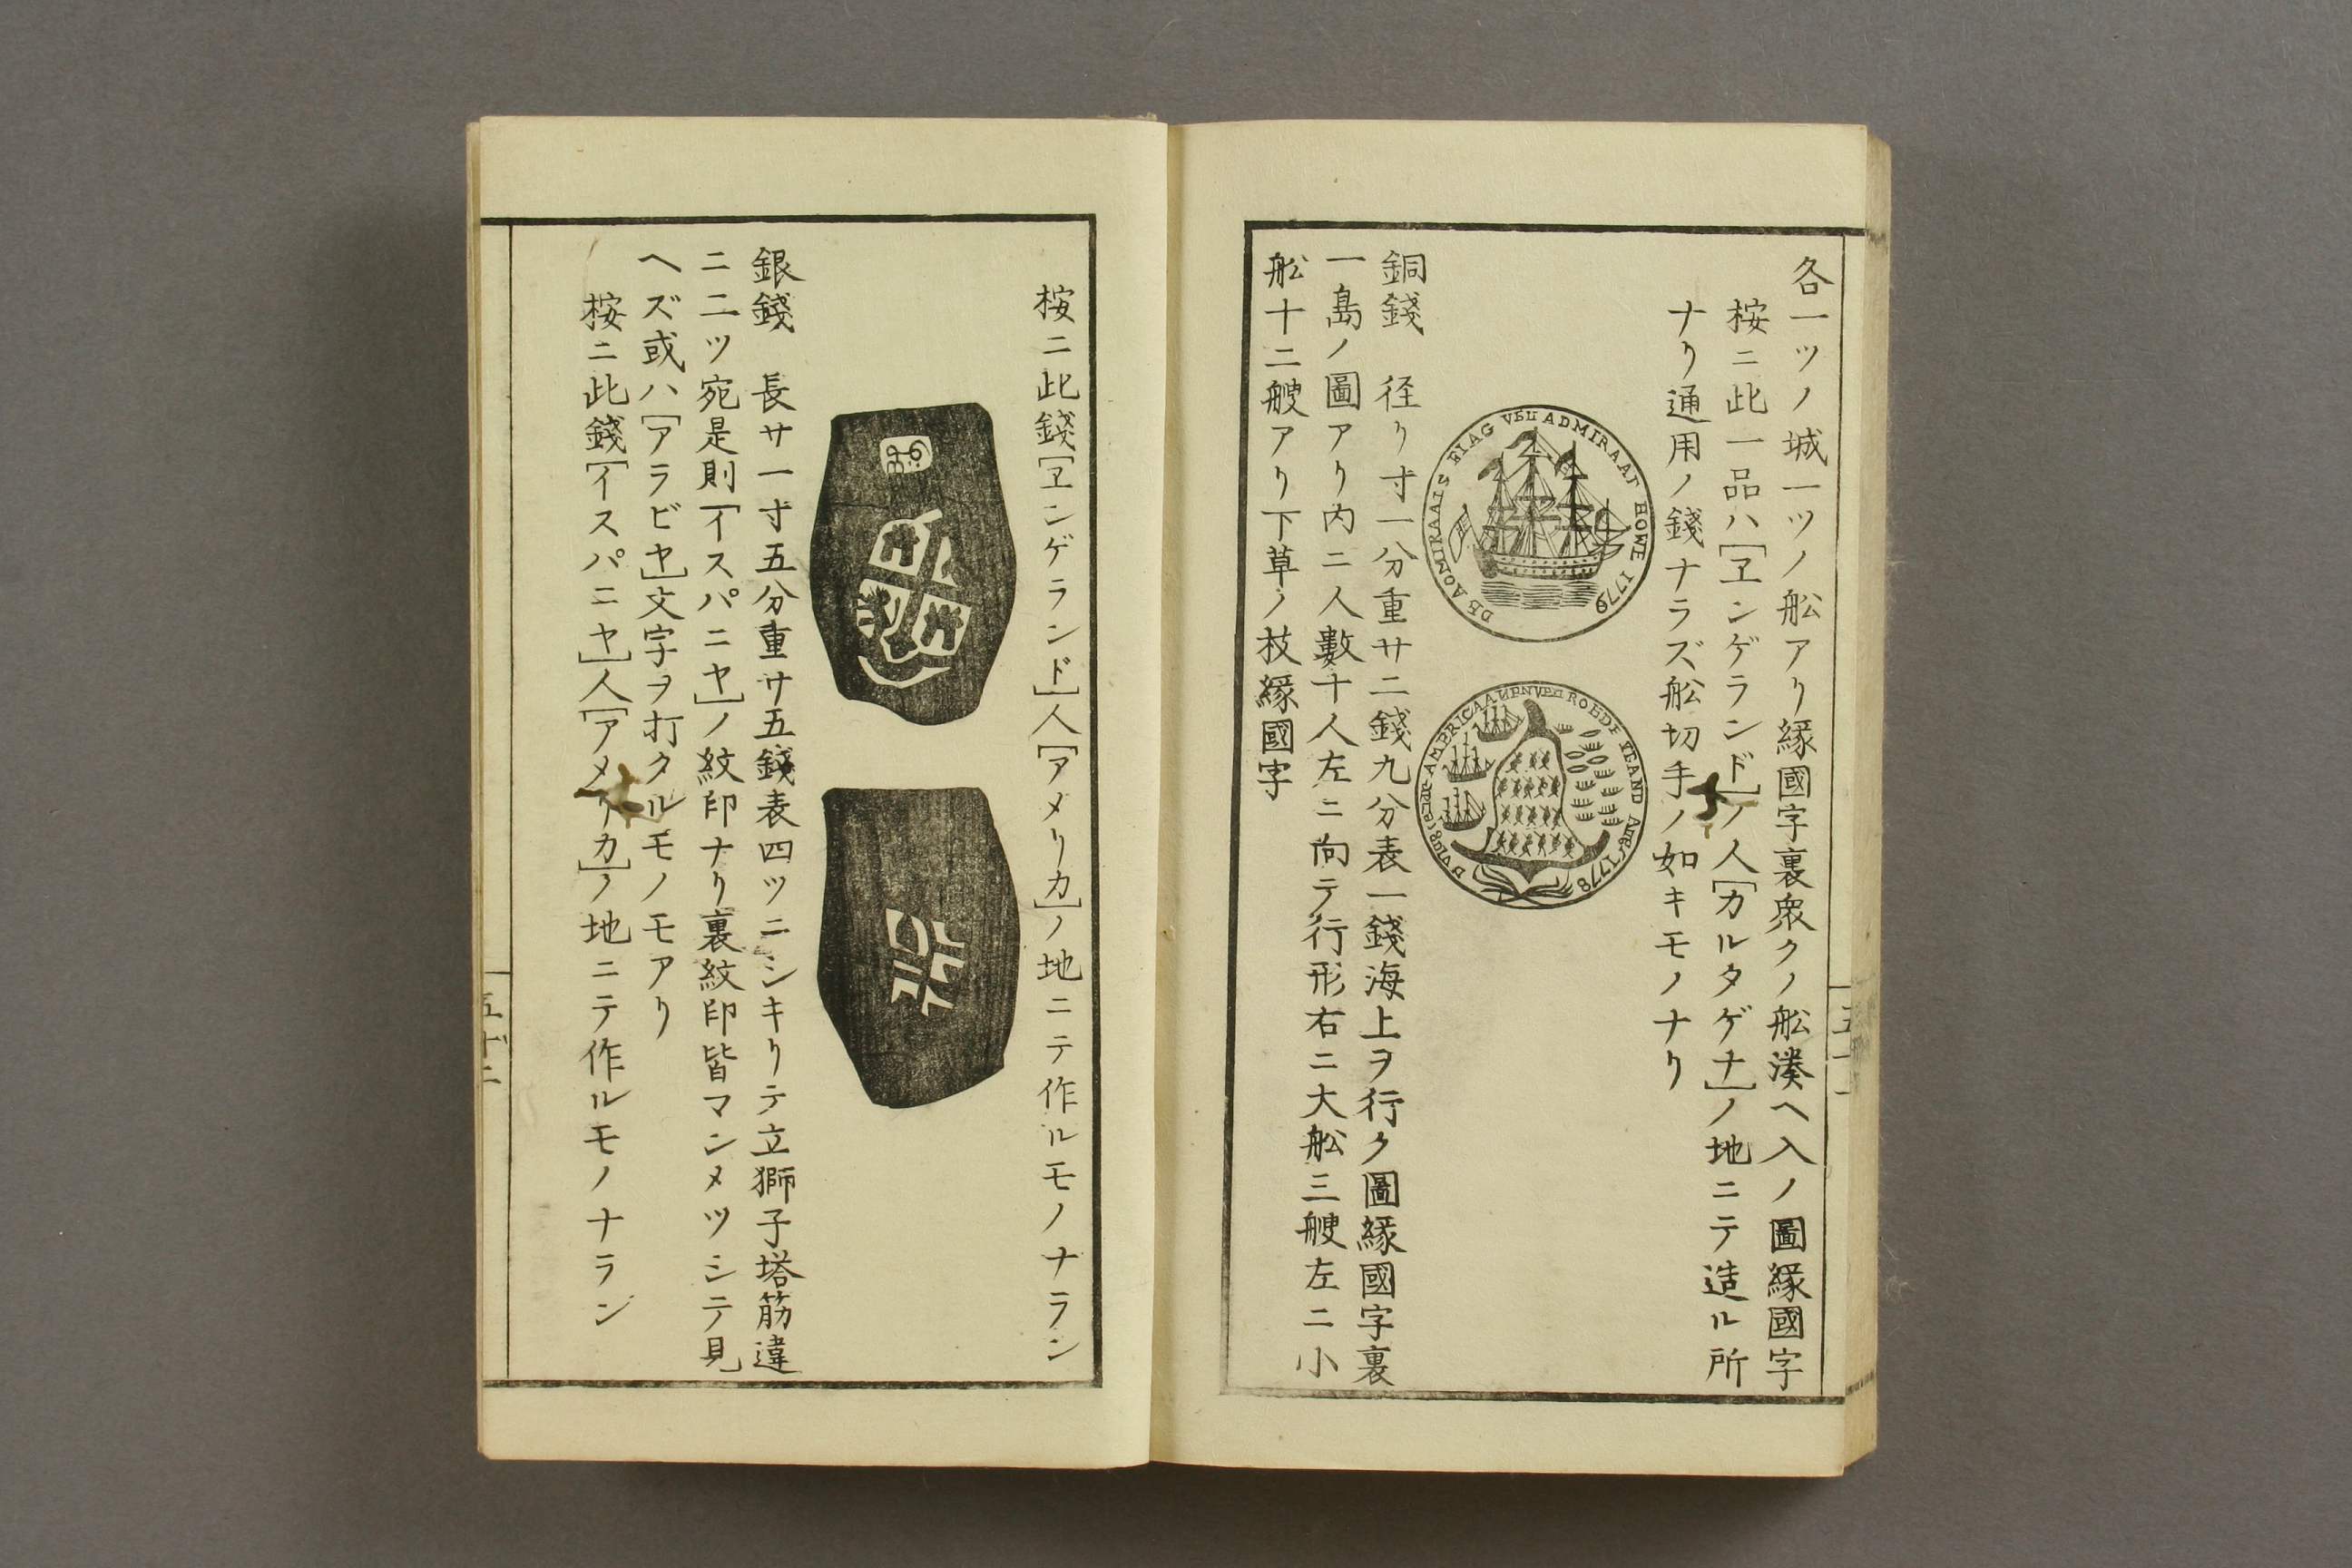 各一ツノ城一ツノ舩アリ縁國字裏衆クノ舩湊ヘ入ノ圖縁國字
桉ニ此一品ハ[ヱンゲランド]ノ人[カルタゲナ]ノ地ニテ造ル所
ナリ通用ノ錢ナラズ舩切手ノ如キモノナリ
DE ADMIRAALS FLAG VAN ADMIRAAL HOWE 1779
銅錢 径リ寸一分重サ二錢九分表一錢海上ヲ行ク圖縁國字裏
一島ノ圖アリ内ニ人數十人左ニ向テ行形右ニ大舩三艘左ニ小
舩十二艘アリ下草ノ枝縁國字
五十一
桉ニ此錢[ヱンゲランド]人[アメリカ]ノ地ニテ作ルモノナラン
銀錢 長サ一寸五分重サ五錢表四ツニシキリテ立獅子塔筋違
ニ二ツ宛是則[イスパニヤ]ノ紋印ナリ裏紋印皆マンメツシテ見
ヘズ或ハ[アラビヤ]文字ヲ打タルモノモアリ
桉ニ此錢[イスパニヤ]人[アメリカ]ノ地ニテ作ルモノナラン
五十二